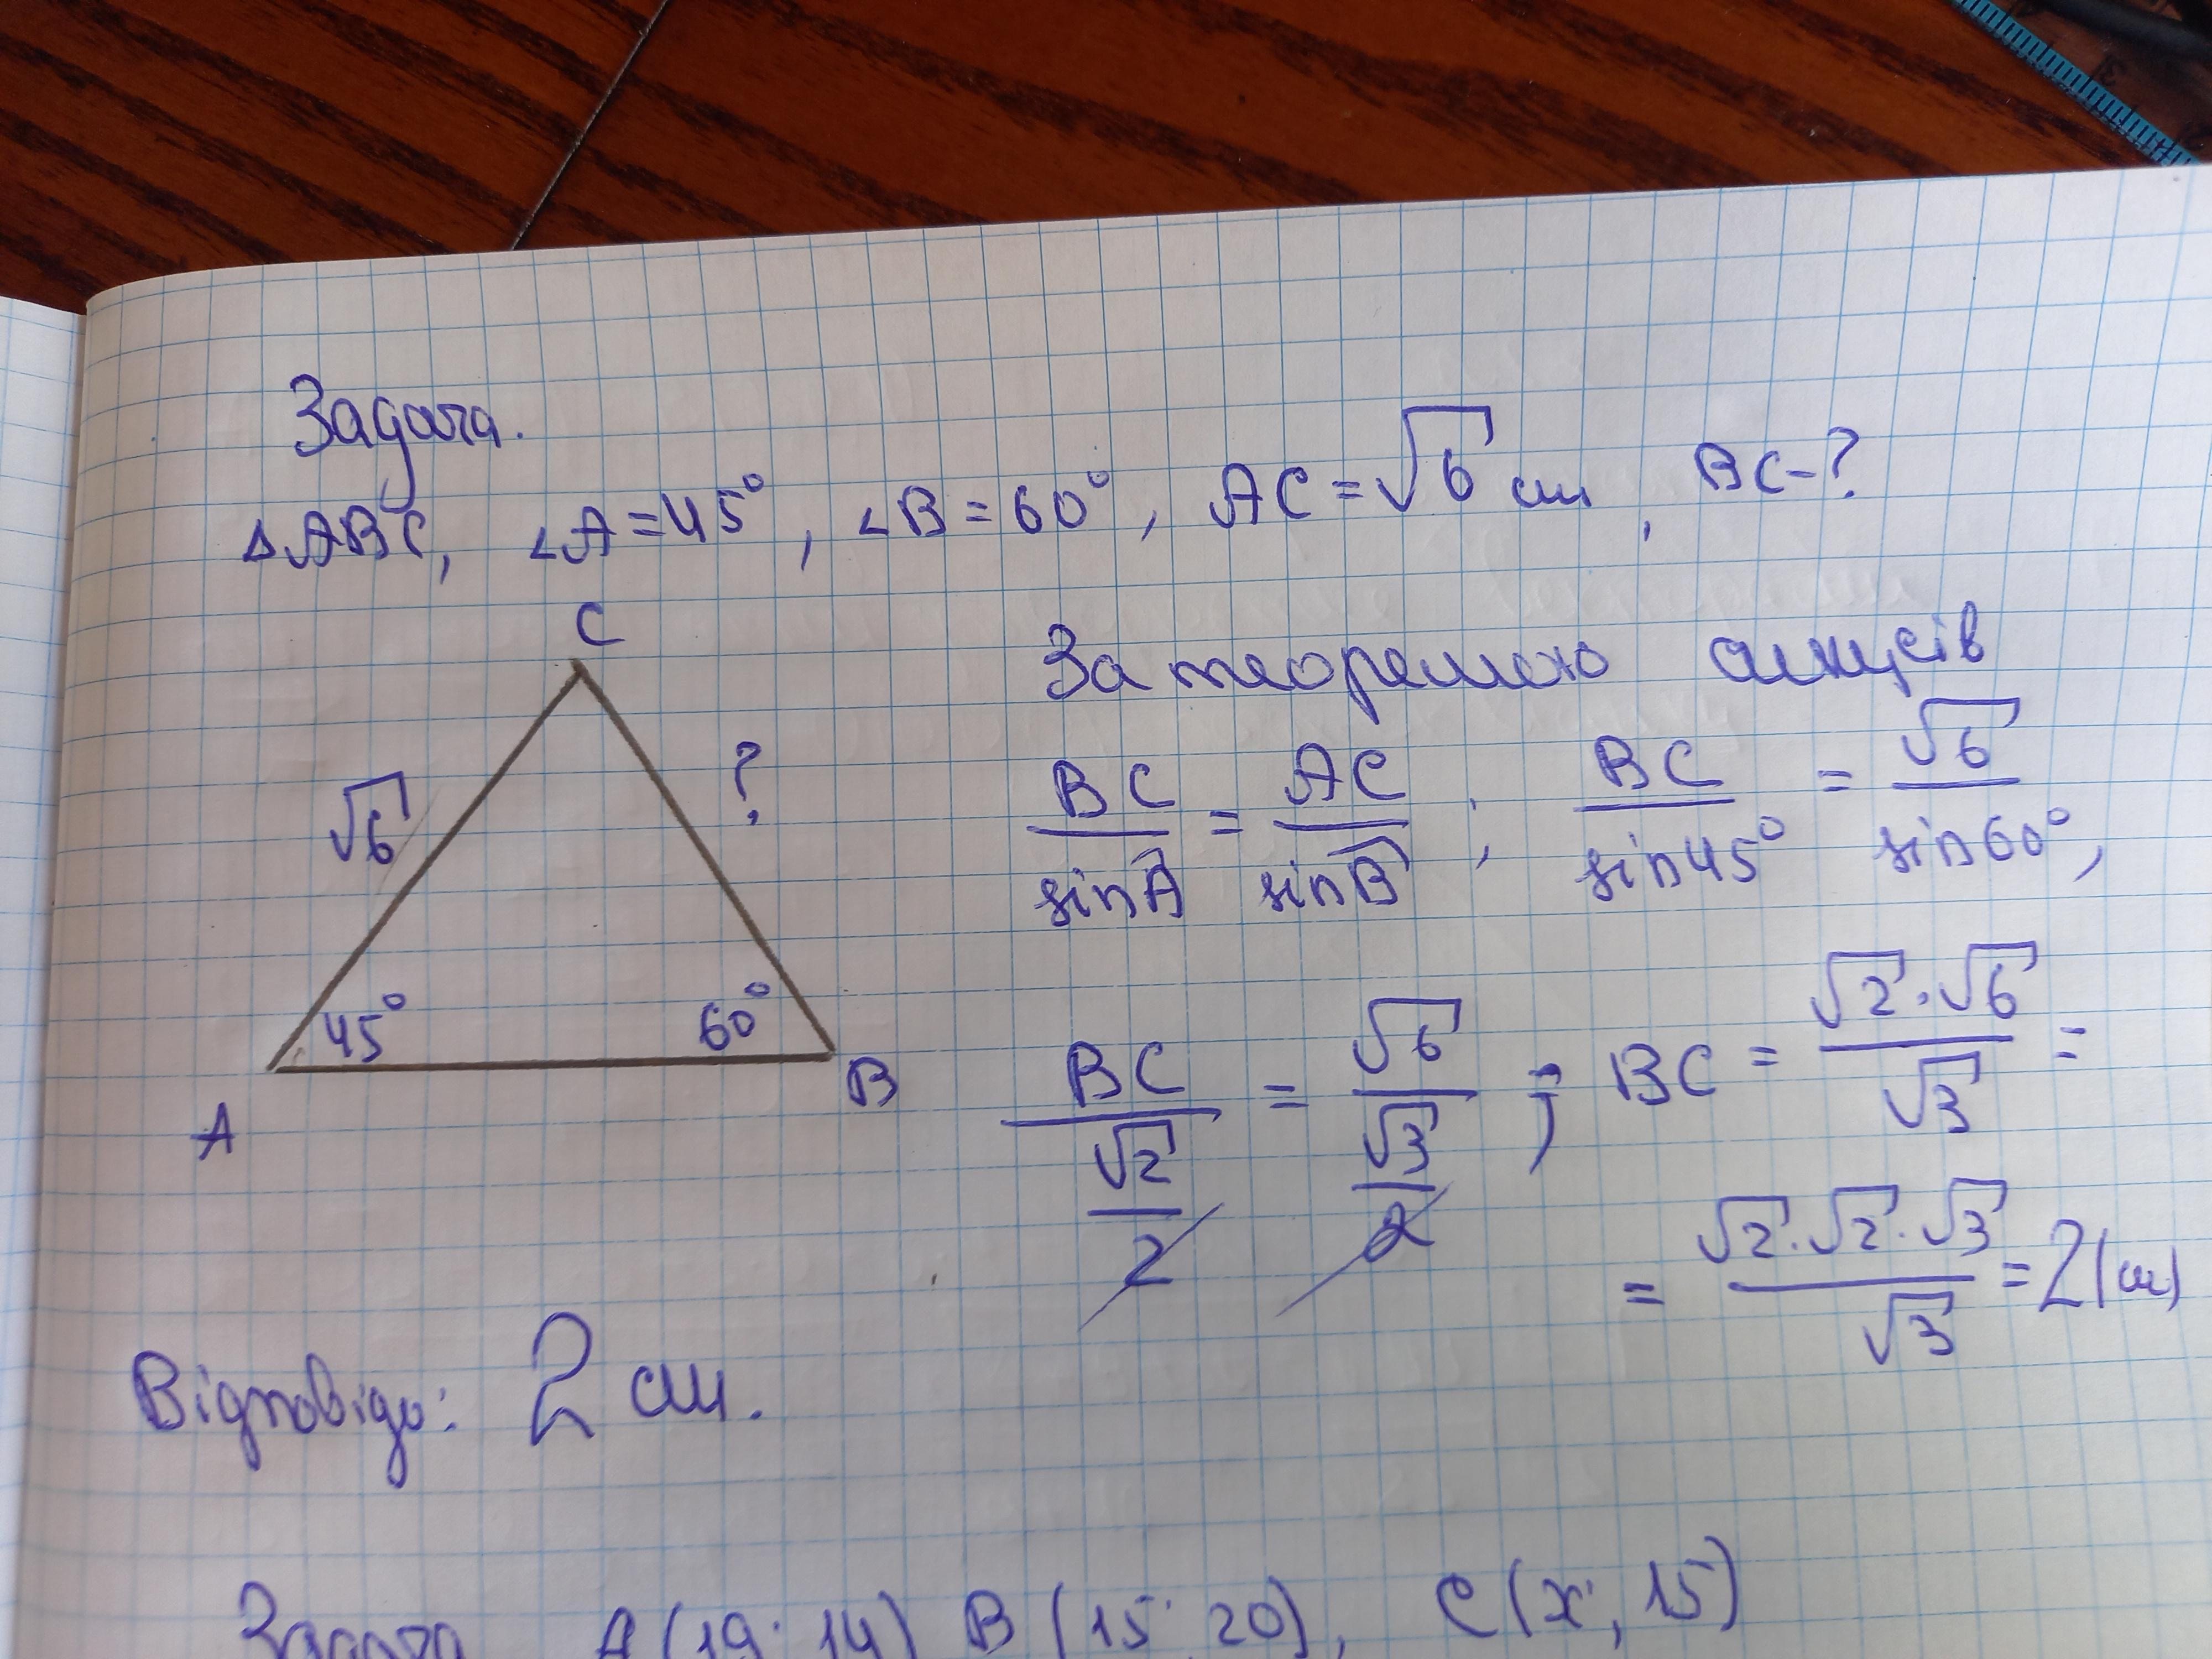 Задача.
△ABC, ∠A=45°, ∠B=60°, AC=√6 см, BC-?
C
√6
?
45°
60°
A
B
За теоремою синусів
BC/sinA = AC/sinB ; BC/sin45° = √6/sin60°,
BC/(√2/2) = √6/(√3/2) ; BC = √2·√6/√3 =
= √2·√2·√3/√3 = 2(см)
Відповідь: 2 см.
Задача A(19; 14) B(15; 20), C(x; 15)